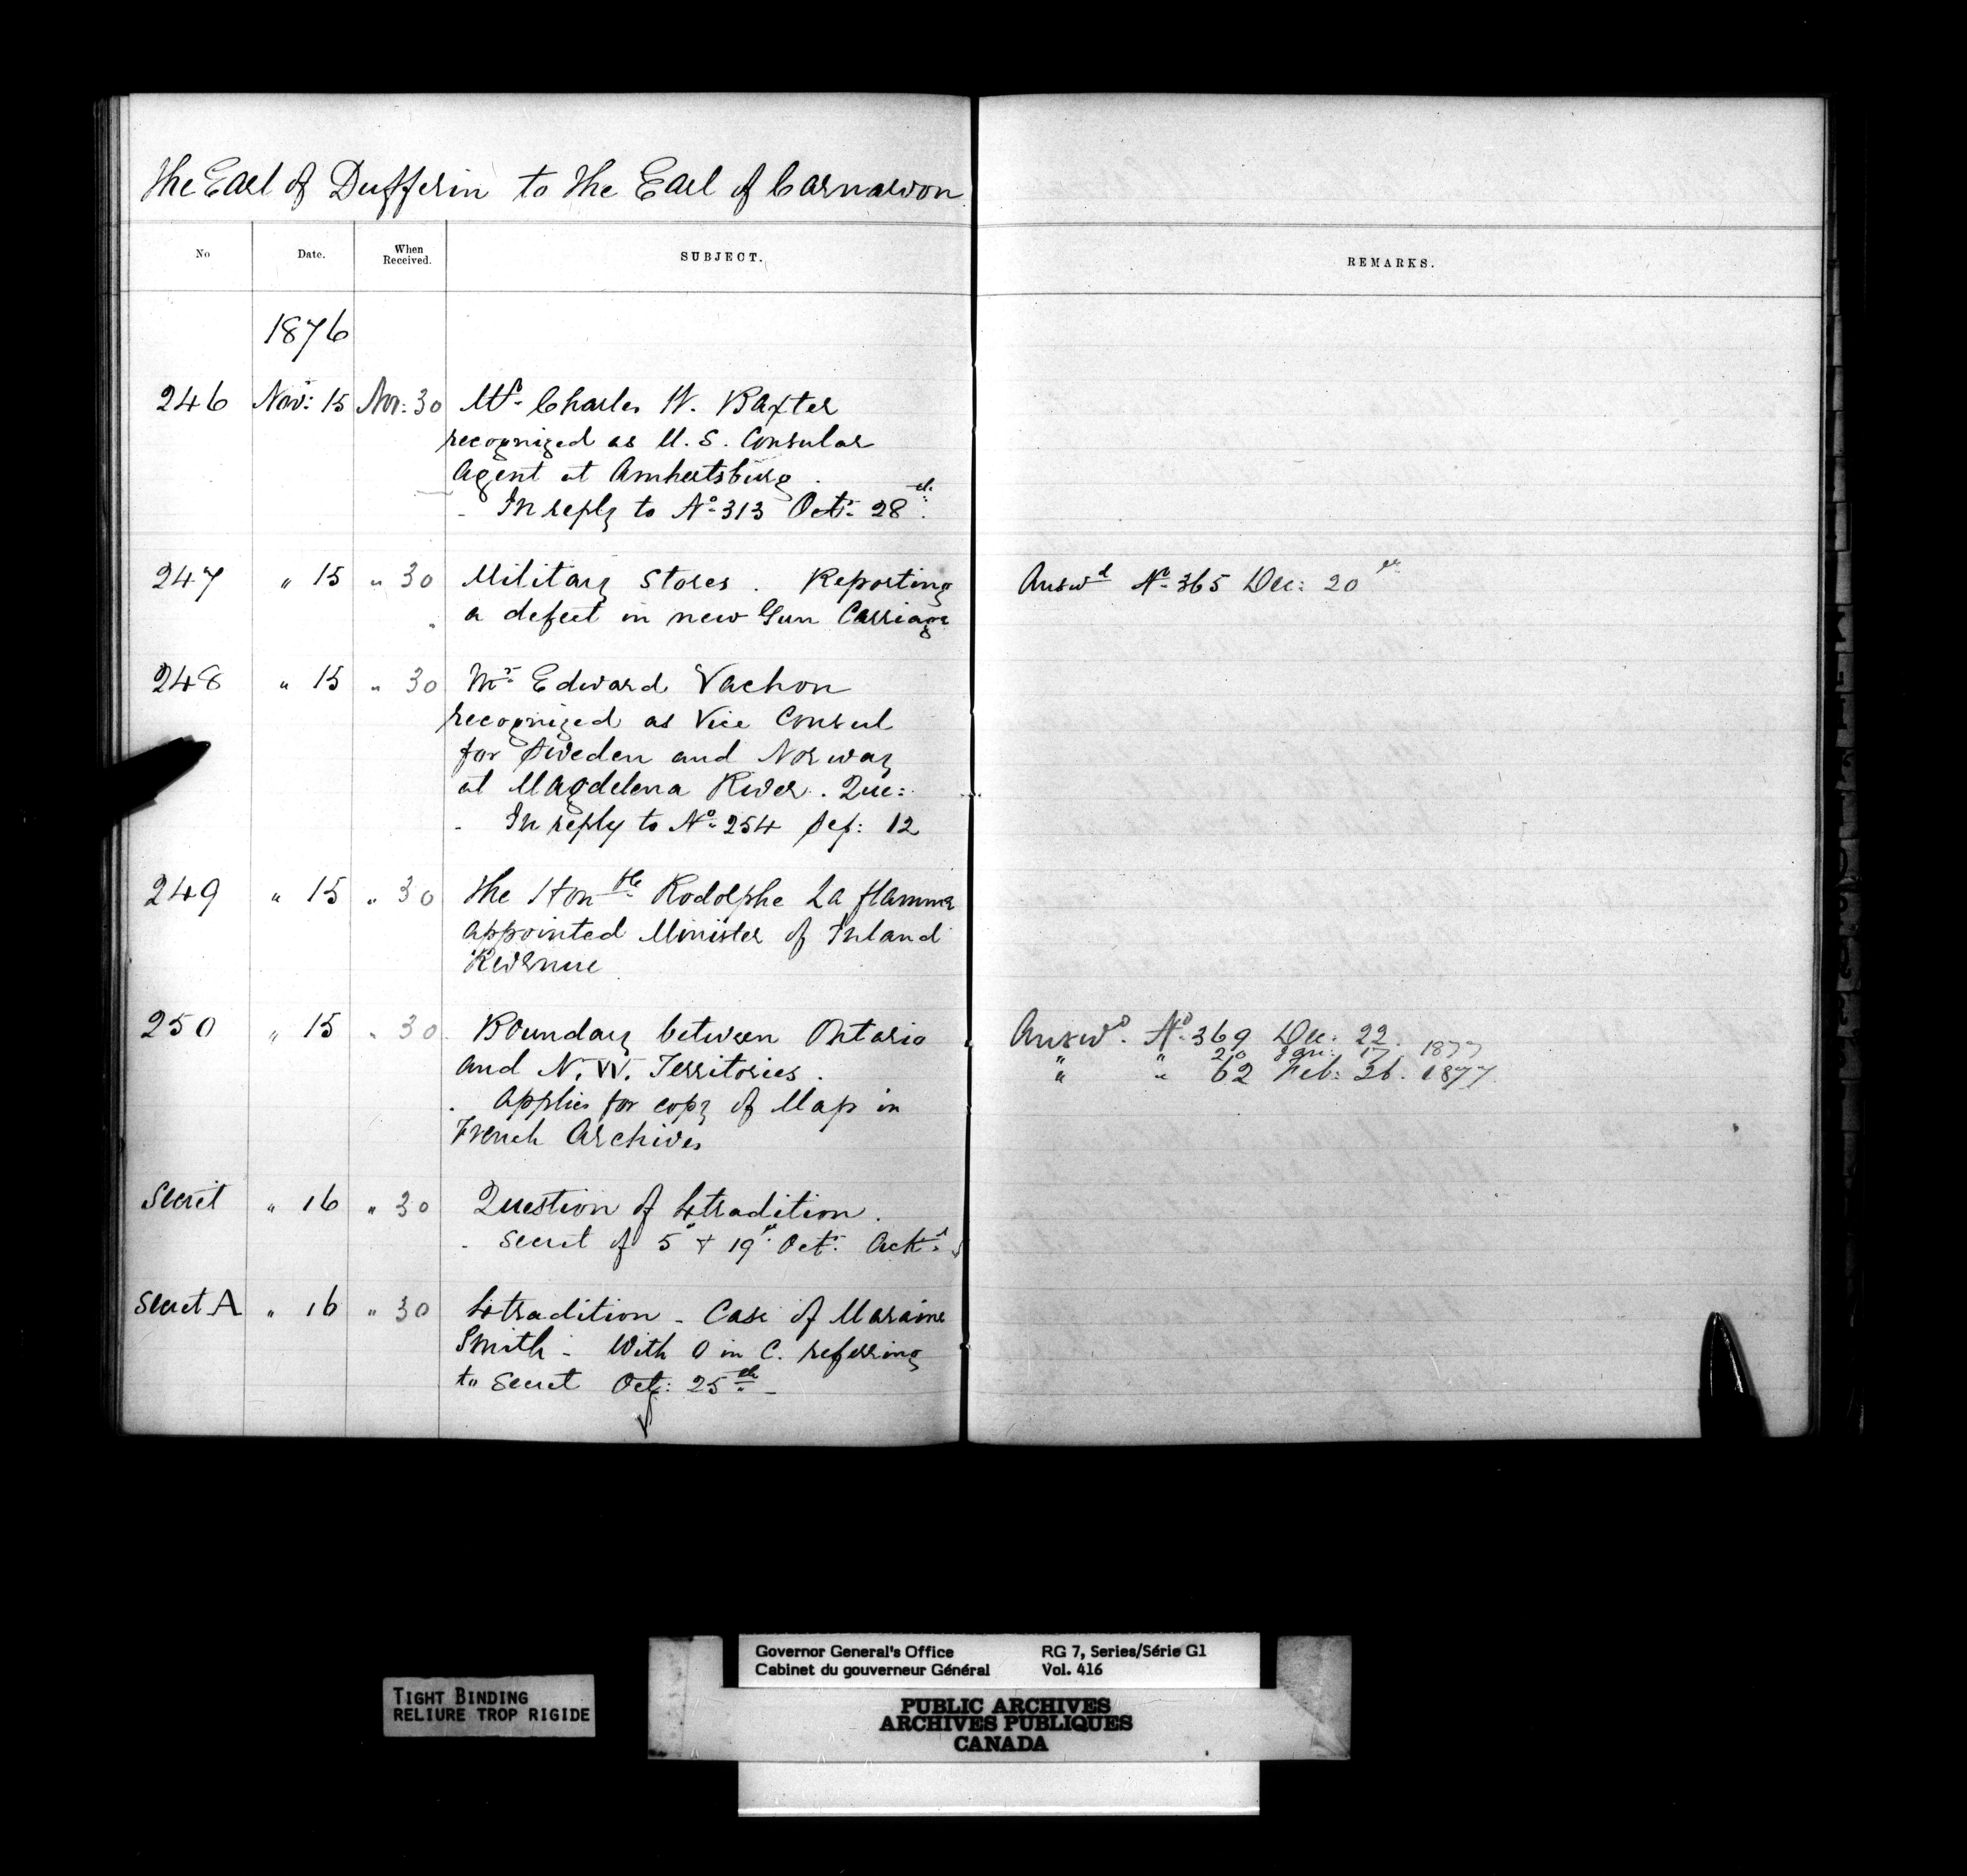 The Earl of Dufferin to the Earl of Carnarvon
No Date. When Received. SUBJECT. REMARKS.
1876
246 Nov: 15 Nov: 30 Mr. Charles W. Baxter
recognized as U. S. Consular
Agent at Amhertsburg.
- In reply to No. 313 Octr. 28th.
247 " 15 " 30 Military Stores. Reporting Answd. No. 365 Dec: 20th
a defect in new Gun Carriage
248 " 15 " 30 Mr. Edward Vachon
recognized as Vice Consul
for Sweden and Norway
at Magdelena River. Que:
- In reply to No. 254 Sep: 12
249 " 15 " 30 The Honble. Rodolphe La flamme
appointed Minister of Inland
Revenue
250 " 15 " 30 Boundary between Ontario Answd. No. 369 Dec: 22.
" " 20 Jan: 17. 1877
and N. W. Territories. " " 62 Feb: 26. 1877.
. Applies for copy of Map in
French Archives
Secret " 16 " 30 Question of Extradition.
- Secret of 5 & 19th. Octr. Ackd.
Secret A " 16 " 30 Extradition - Case of
Smith - With O in C. referring
to Secret Oct: 25th -
TIGHT BINDING
RELIURE TROP RIGIDE
Governor General's Office RG 7, Series/Série G1
Cabinet du gouverneur Général Vol. 416
PUBLIC ARCHIVES
ARCHIVES PUBLIQUES
CANADA